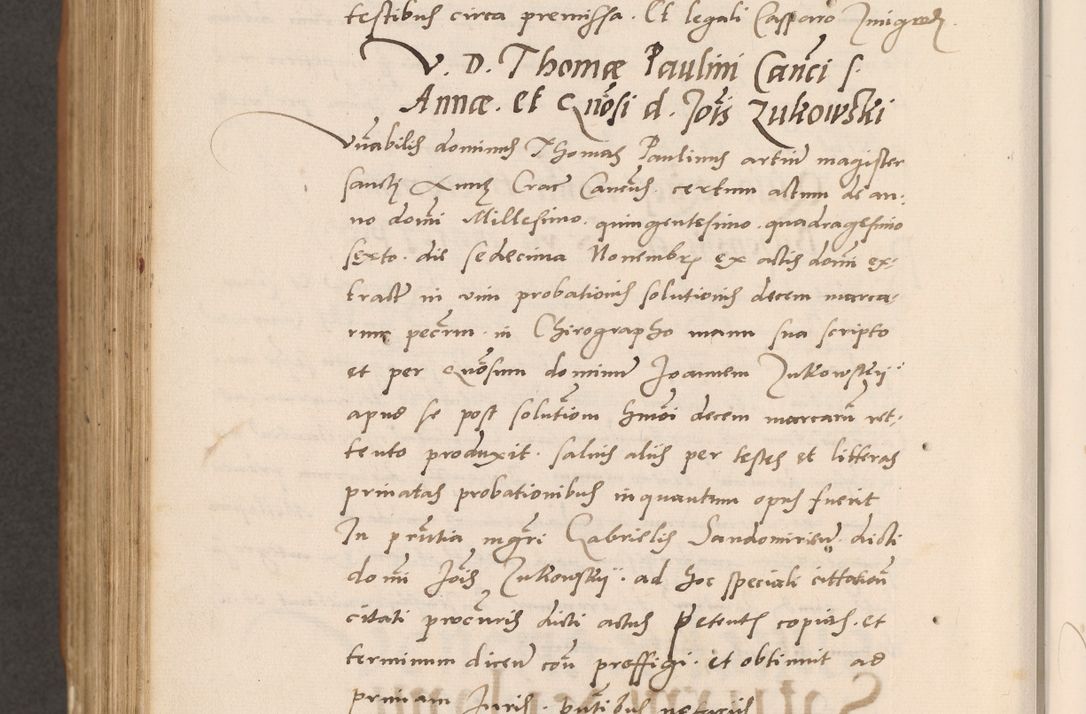 testibus circa premissa. Et legali Casparo
V. D. Thomæ Paulini Canci s.
Annæ. et Gnosi d. Jois Zukowski
Vnabilis dominus Thomas Paulinus artium magister
sancti Annæ Crac Cancus. certum actum de an-
no domi Millesimo. quingentesimo. quadragesimo
sexto. die sedecima Nouembr. ex actis domi ex-
tract in vim probationis solutionis decem marca-
rum pecum. in Chirographo manu sua scripto
et per Gnosum dominum Joannem Zukowskij
apud se post solutiom hmoi decem marcarum ret-
tento produxit. saluis aliis per testes et litteras
priuatas probationibus inquantum opus fuerit
In prntia mgri Gabrielis Sandomirien. dicti
domi Jois Zukowskij. ad hoc speciali cittation
citati procuris dicti actus petentis copias. et
terminum dicen con preffigi. et obtinuit ad
primam Juris. pntibus notariis